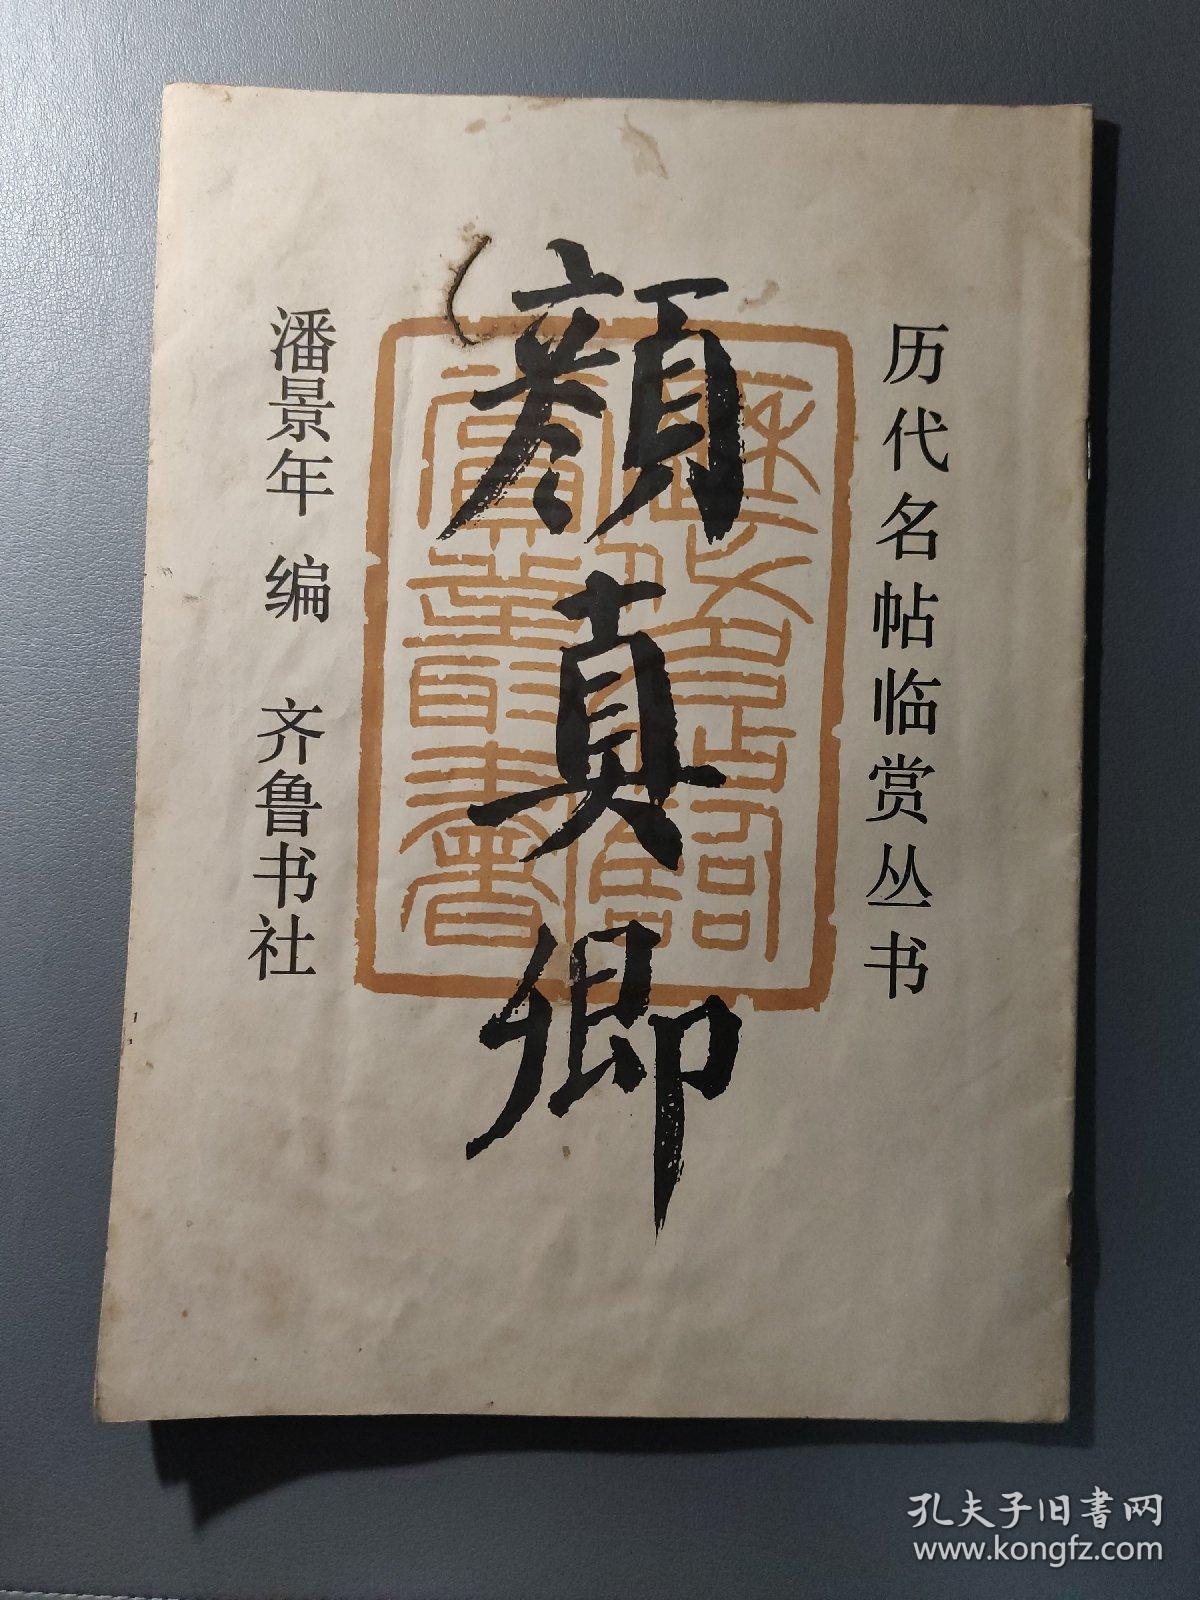 历代名帖临赏丛书
顔真卿
潘景年 编 齐鲁书社
孔夫子旧书网
www.kongfz.com